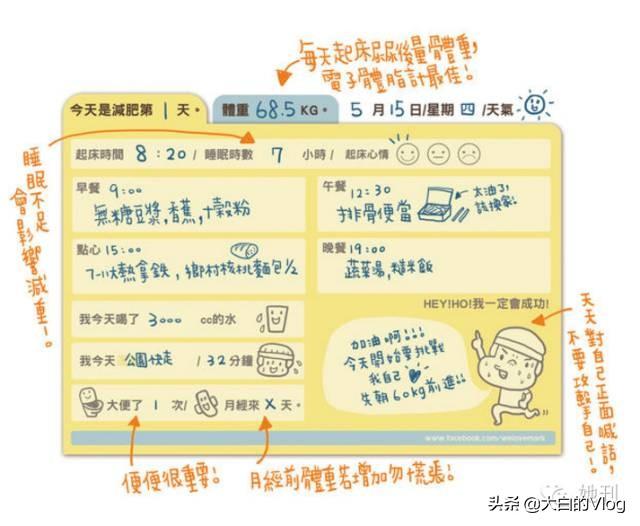 每天起床尿尿後量體重,
電子體脂計最佳!
今天是減肥第 1 天。
體重 68.5 KG。
5 月 15 日/星期 四 /天氣
起床時間 8:20 / 睡眠時數 7 小時 / 起床心情
睡眠不足
會影響減重!。
早餐 9:00
無糖豆漿,香蕉,十穀粉
午餐 12:30
排骨便當
太油了!
該換家!
點心 15:00
7-11大熱拿鐵, 鄉村核桃麵包1/2
晚餐 19:00
蔬菜湯,糙米飯
HEY!HO!我一定會成功!
我今天喝了 3000 cc的水
我今天 公園快走 / 32分鐘
大便了 1 次/ 月經來 X 天。
加油啊!!!
今天開始要挑戰
我自己
先朝60kg前進!!
天天對自己正面喊話,
不要攻擊自己!。
www.facebook.com/welovemark
便便很重要!
月經前體重若增加勿慌張!
她刊
头条 @大白的Vlog